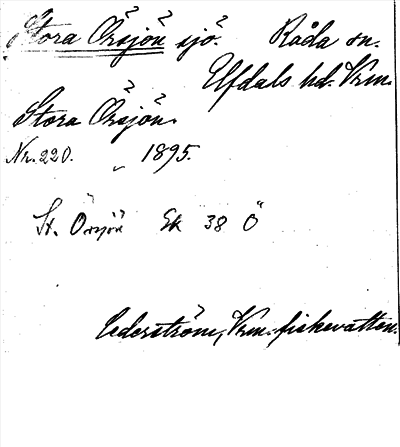 Stora Örsjön sjö. Råda sn.
Elfdals hd. Vrm.
Stora Örsjön.
Nr. 220. 1895.
St. Örsjön Ek 38 Ö
Cederström, Vrm. fiskevatten.